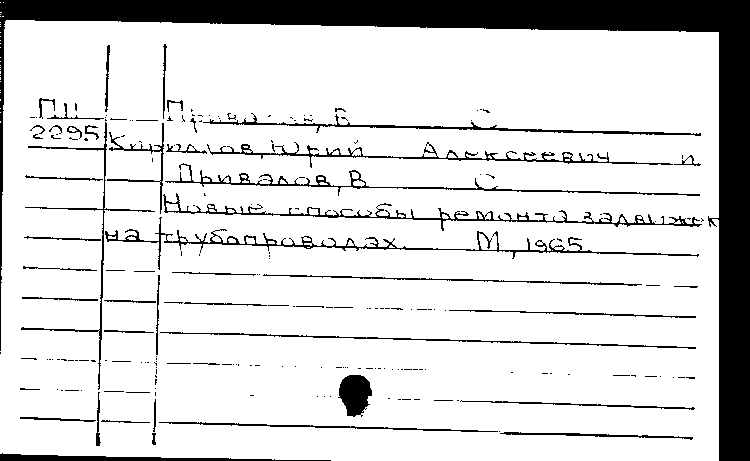 ПII Привалов, В С
2295 Кириллов, Юрий Алексеевич и
Привалов, В С
Новые способы ремонта задвижек
на трубопроводах. М., 1965.